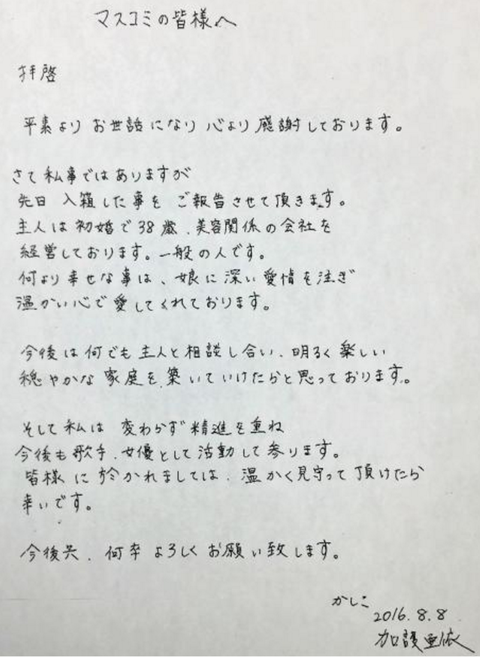 マスコミの皆様へ
拝啓
平素より お世話になり 心より 感謝しております。
さて私事ではありますが
先日 入籍した事を ご報告させて頂きます。
主人は初婚で38歳、美容関係の会社を
経営しております。一般の人です。
何より幸せな事は、娘に深い愛情を注ぎ
温かい心で愛してくれております。
今後は何でも主人と相談し合い、明るく楽しい
穏やかな家庭を築いていけたらと思っております。
そして私は 変わらず精進を重ね
今後も歌手、女優として活動して参ります。
皆様に於かれましては、温かく見守って頂けたら
幸いです。
今後共、何卒よろしくお願い致します。
かしこ
2016.8.8
加護亜依